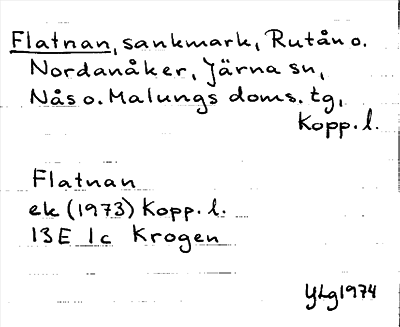 Flatnan, sankmark, Rutån o.
Nordanåker, Järna sn,
Nås o. Malungs doms. tg,
Kopp. l.
Flatnan
ek (1973) Kopp. l.
13E 1c Krogen
YLg 1974